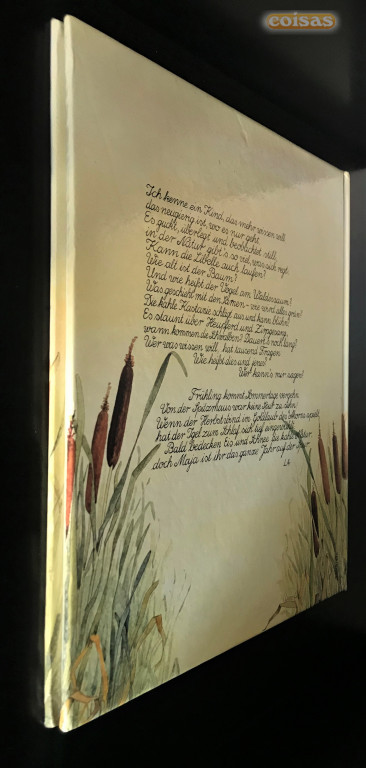 coisas
Ich kenne ein Kind, das mehr wissen will
das neugierig ist, wo es nur geht.
Es guckt, überlegt und beobachtet still,
in der Natur gibt's so viel, was sich regt.
Kann die Libelle auch laufen?
Wie alt ist der Baum?
Und wie heißt der Vogel am Waldessaum?
Was geschieht mit den Samen - wie wird alles grün?
Die kahle Kastanie schlägt aus und kann blühn!
Es staunt über Heupferd und Zirpgesang,
wann kommen die Schwalben? Dauert's noch lang?
Wer was wissen will, hat tausend Fragen
Wie heißt dies und jenes?
Wer kann's nur sagen?
Frühling kommt, Sommertage vergehn,
Von der Spitzmaus war keine Spur zu sehn.
Wenn der Herbstwind im Goldlaub des Ahorns spielt,
hat der Igel zum Schlaf sich tief eingewühlt.
Bald bedecken Eis und Schnee die kahlen
doch Maja ist ihr das ganze Jahr auf der Spur